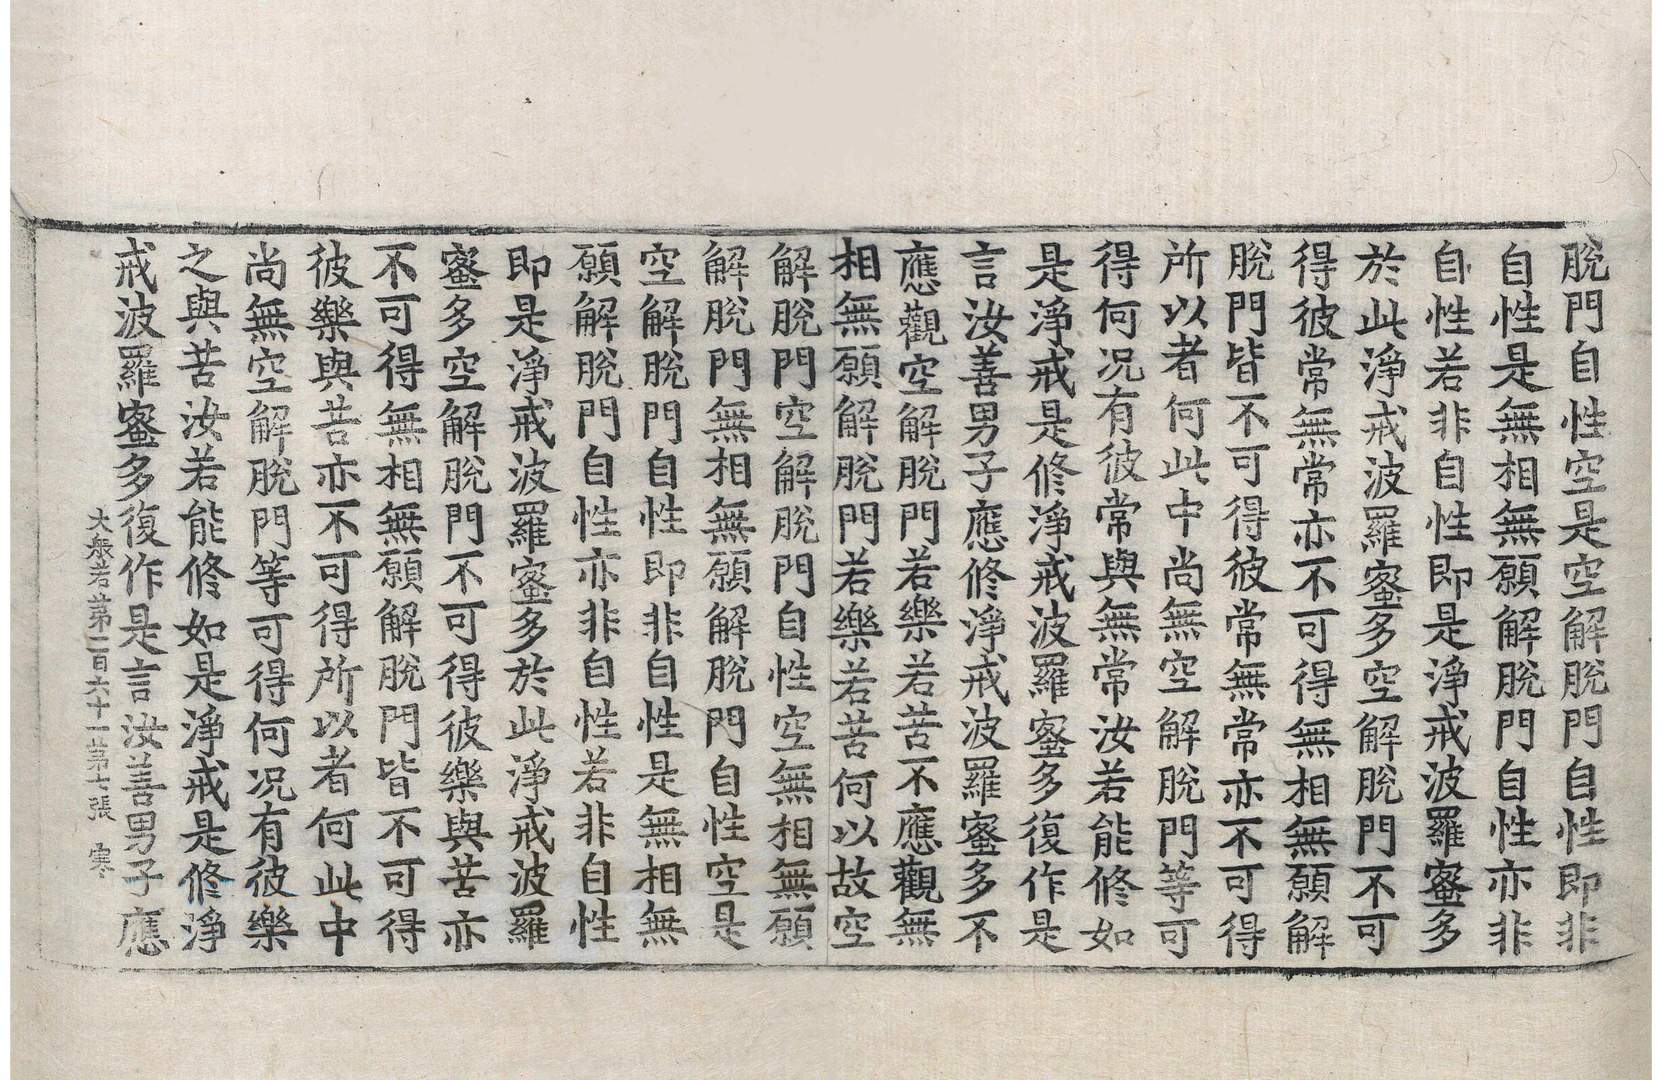 脫門自性空是空解脫門自性即非
自性是無相無願解脫門自性亦非
自性若非自性即是淨戒波羅蜜多
於此淨戒波羅蜜多空解脫門不可
得彼常無常亦不可得無相無願解
脫門皆不可得彼常無常亦不可得
所以者何此中尚無空解脫門等可
得何况有彼常與無常汝若能修如
是淨戒是修淨戒波羅蜜多復作是
言汝善男子應修淨戒波羅蜜多不
應觀空解脫門若樂若苦不應觀無
相無願解脫門若樂若苦何以故空
解脫門空解脫門自性空無相無願
解脫門無相無願解脫門自性空是
空解脫門自性即非自性是無相無
願解脫門自性亦非自性若非自性
即是淨戒波羅蜜多於此淨戒波羅
蜜多空解脫門不可得彼樂與苦亦
不可得無相無願解脫門皆不可得
彼樂與苦亦不可得所以者何此中
尚無空解脫門等可得何况有彼樂
之與苦汝若能修如是淨戒是修淨
戒波羅蜜多復作是言汝善男子應
大般若第二百六十一第七張 寒